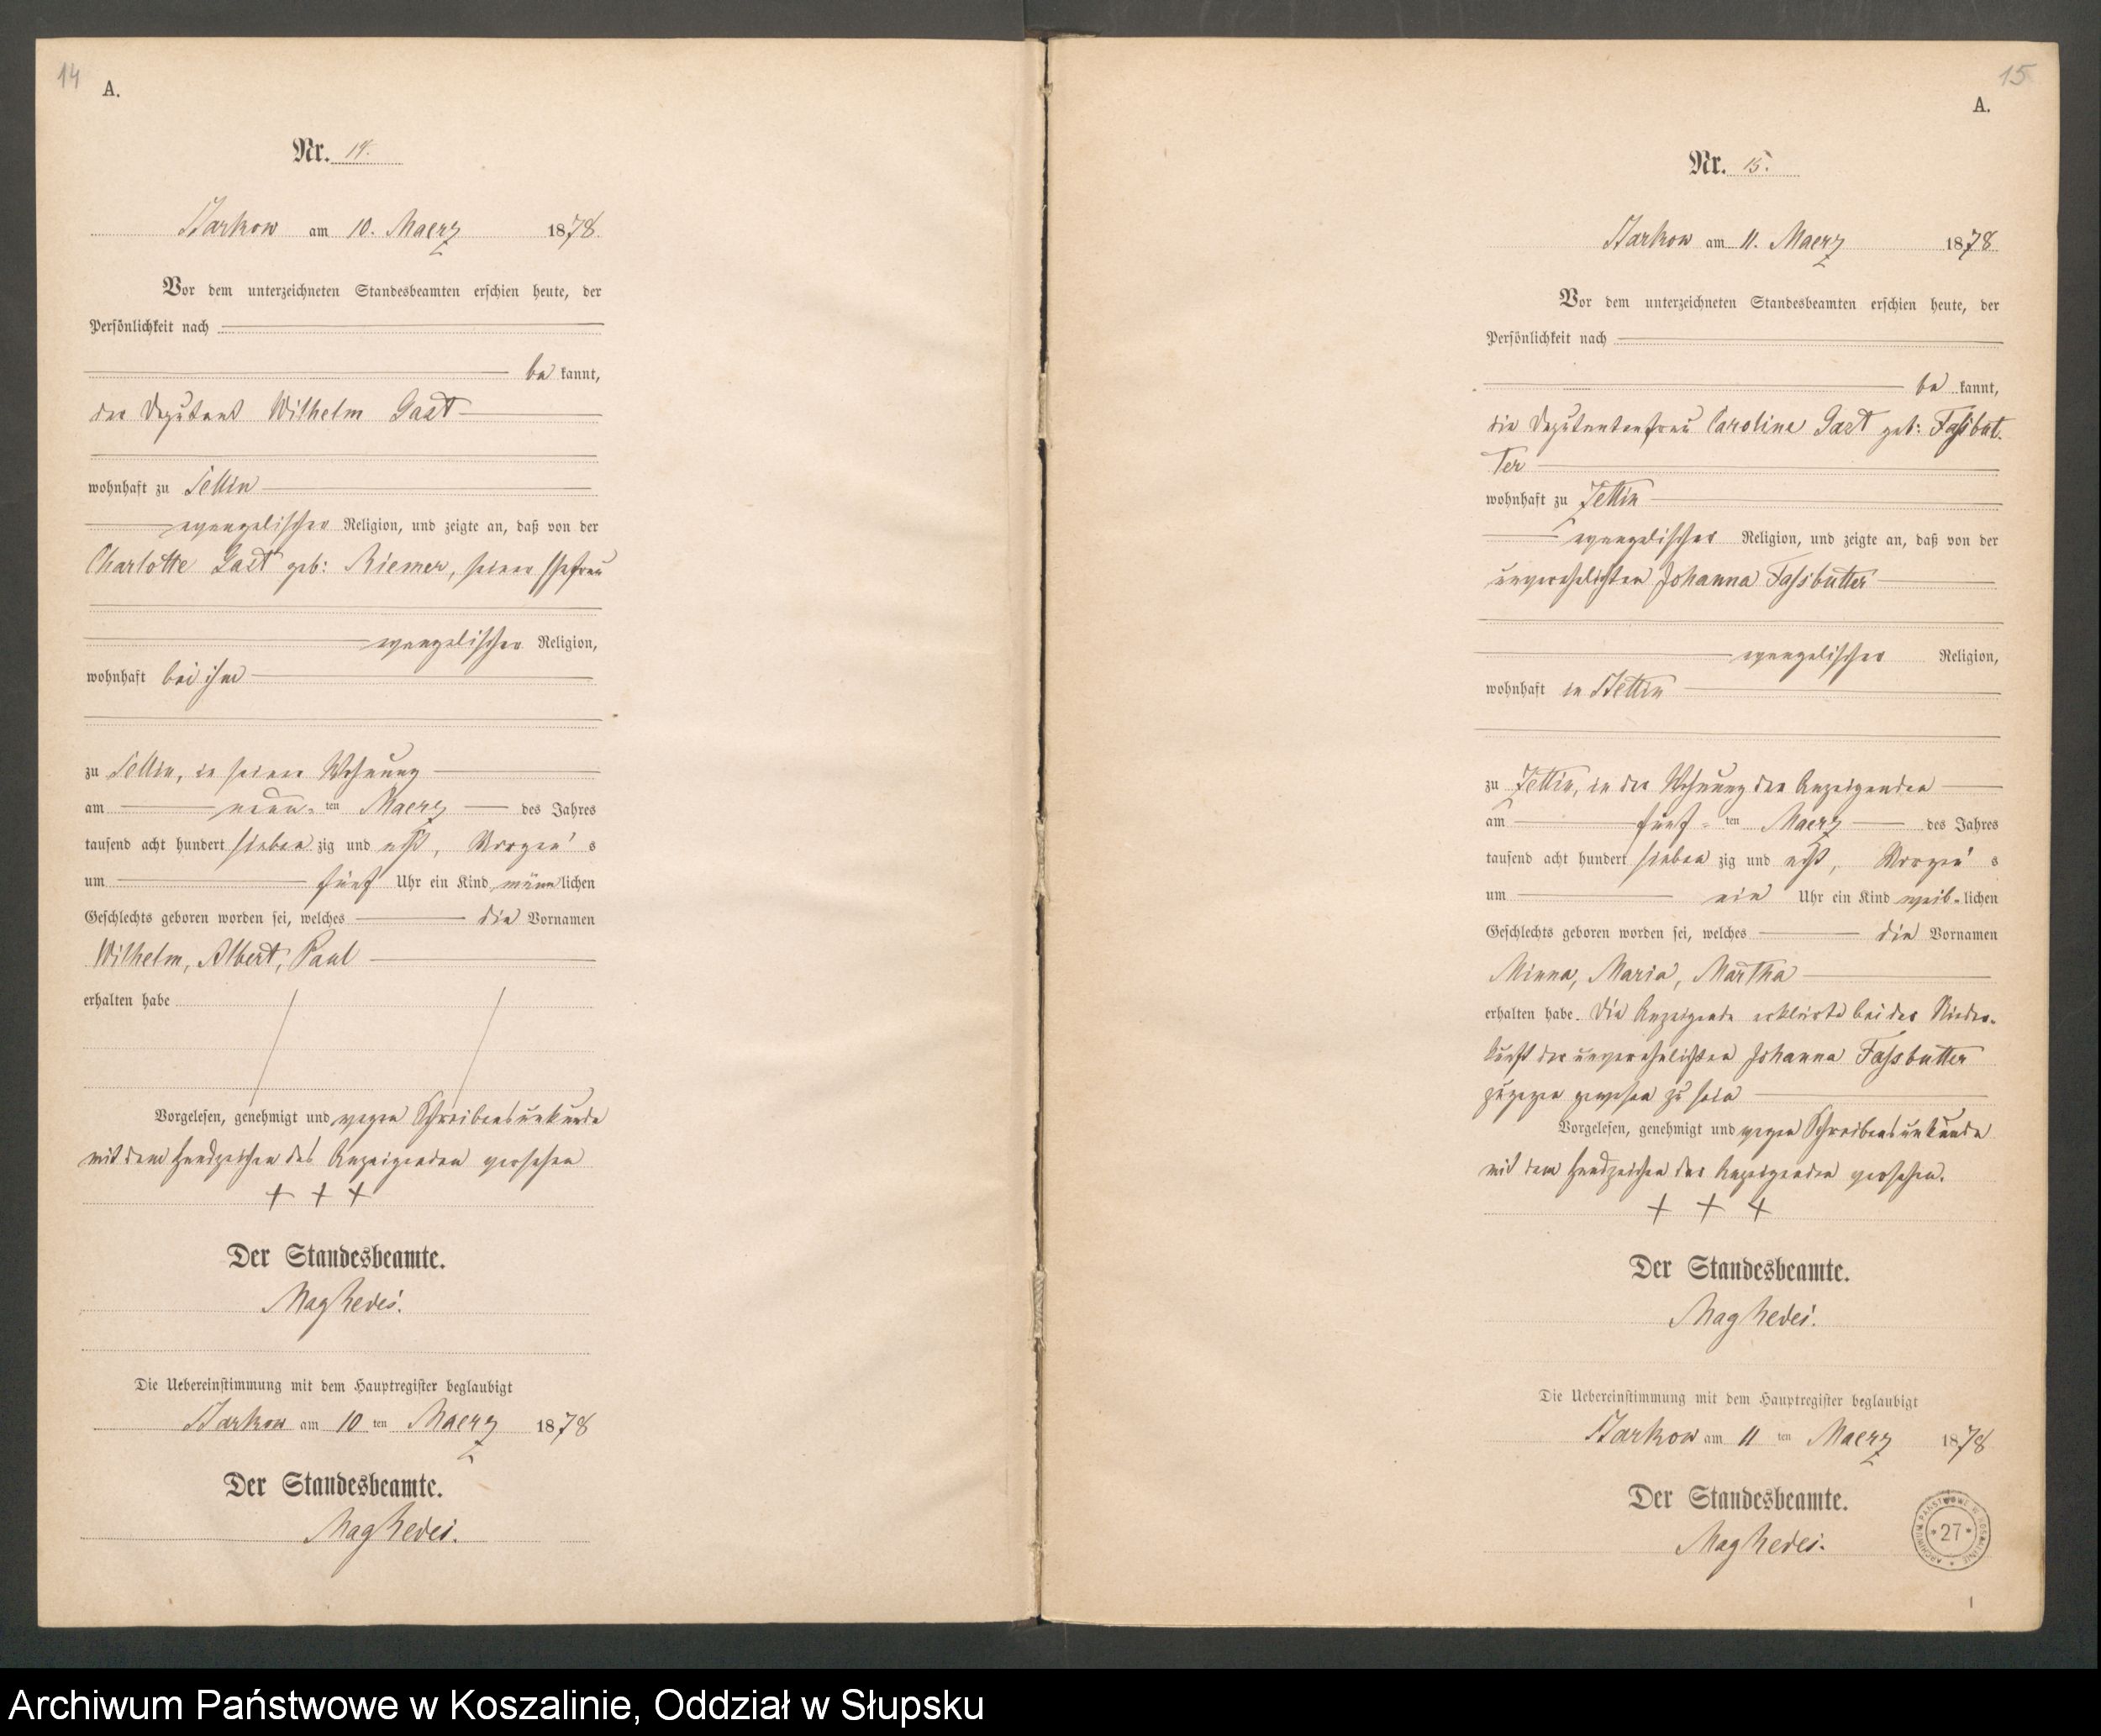 14
A.
Nr. 14.
Starkow am 10. Maerz 1878
Vor dem unterzeichneten Standesbeamten erschien heute, der
Persönlichkeit nach
be kannt,
der Deputant Wilhelm Gast
wohnhaft zu
evangelischer Religion, und zeigte an, daß von der
Charlotte Gast geb: Riemer, seiner Ehefrau
evangelischer Religion,
wohnhaft bei ihm
zu in seiner Wohnung
am neun- ten Maerz des Jahres
tausend acht hundert sieben zig und acht, Morgen s
um fünf Uhr ein Kind männlichen
Geschlechts geboren worden sei, welches die Vornamen
Wilhelm, Albert, Paul
erhalten habe
Vorgelesen, genehmigt und wegen Schreibensunkunde
mit dem Handzeichen des Anzeigenden versehen
+ + +
Der Standesbeamte.
Die Uebereinstimmung mit dem Hauptregister beglaubigt
Starkow am 10 ten Maerz 1878
Der Standesbeamte.
15
A.
Nr. 15.
Starkow am 11. Maerz 1878
Vor dem unterzeichneten Standesbeamten erschien heute, der
Persönlichkeit nach
be kannt,
die Deputantenfrau Caroline Gast geb: Fassbut-
ter
wohnhaft zu
evangelischer Religion, und zeigte an, daß von der
unverehelichten Johanna Fassbutter
evangelischer Religion,
wohnhaft in Stettin
zu in der Wohnung der Anzeigenden
am fünf- ten Maerz des Jahres
tausend acht hundert sieben zig und acht, Morgen s
um ein Uhr ein Kind weib-lichen
Geschlechts geboren worden sei, welches die Vornamen
Minna, Maria, Martha
erhalten habe. Die Anzeigende erklärte bei der Nieder-
kunft der unverehelichten Johanna Fassbutter
zugegen gewesen zu sein
Vorgelesen, genehmigt und wegen Schreibensunkunde
mit dem Handzeichen der Anzeigenden versehen.
+ + +
Der Standesbeamte.
Die Uebereinstimmung mit dem Hauptregister beglaubigt
Starkow am 11 ten Maerz 1878
Der Standesbeamte.
ARCHIWUM PAŃSTWOWE W KOSZALINIE
* 27 *
1
Archiwum Państwowe w Koszalinie, Oddział w Słupsku